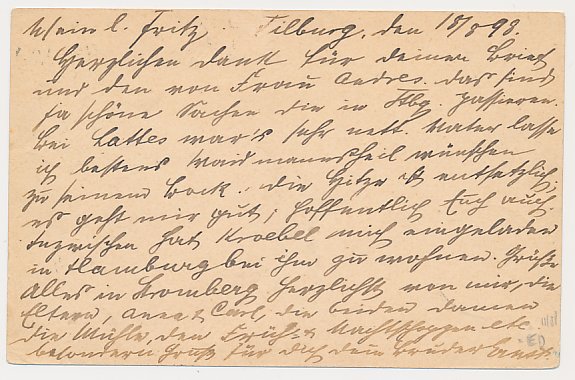 Mein l. Fritz. Tilburg, den 18/8 98.
Herzlichen Dank für deinen Brief
und den von Frau Andres. Das sind
ja schöne Sachen die in Hbg. passieren.
Bei Lattes war's sehr nett. Vater lasse
ich bestens Waidmannsheil wünschen
zu seinem Bock. Die Hitze ist entsetzlich,
es geht mir gut, hoffentlich Euch auch.
Inzwischen hat Kroebel mich eingeladen
in Hamburg bei ihm zu wohnen. Grüße
Alles in Homberg herzlichst von mir, die
Eltern, Anna & Carl, die beiden Damen
die Mühle, den Früh- & Nachtschoppen etc.
besondern Gruß für dich dein Bruder
ED